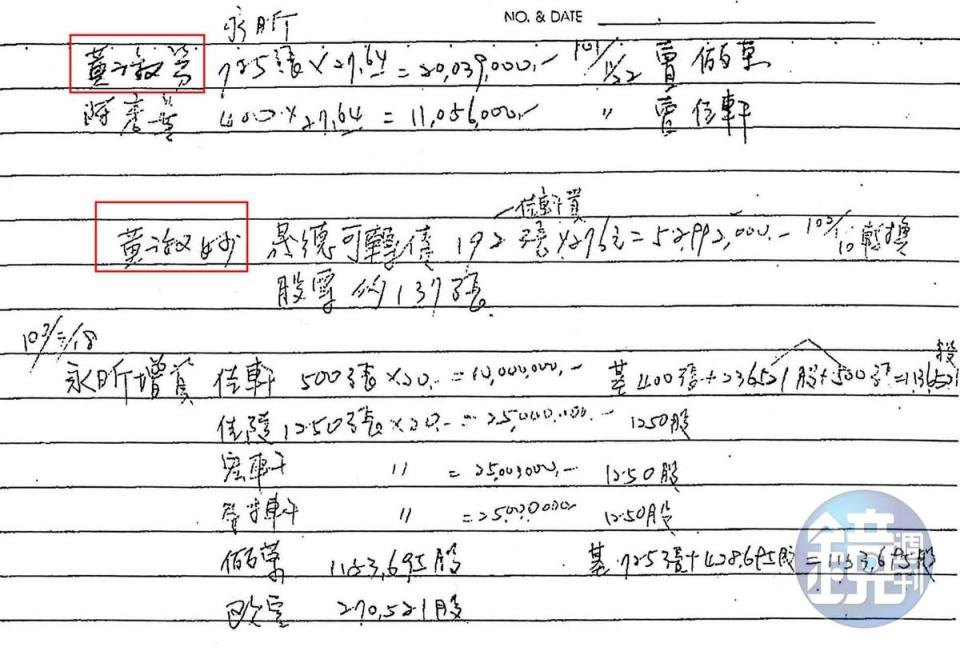 NO. & DATE
永昕
725張×27.64=20,039,000.- 101/11/22 賣佰萬
400×27.64=11,056,000.- 〃 賣佳軒
佳軒買
黃淑妙 晟德可轉債 192張×276元=52,992,000.- 102/10轉換
股票約137張
103/三/18
永昕增資 佳軒 500張×20.-=10,000,000.- 基400張+236521股+500張=1136521股
佳陵 1250張×20.-=25,000,000.- 1250股
宏軒 〃 =25,000,000.- 1250股
〃 =25,000,000 1250股
佰萬 1153,695股 基725張+428,695股=1153,695股
歐室 270,521股
鏡週刊